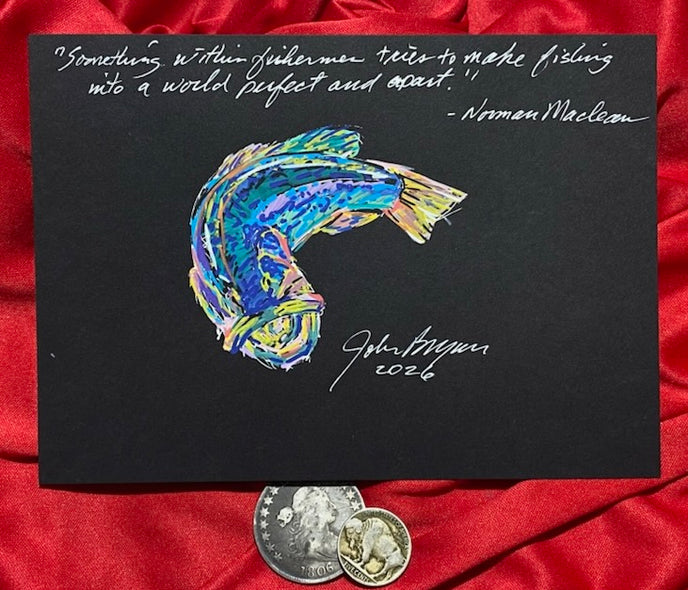 "Something within fishermen tries to make fishing
into a world perfect and apart."
- Norman Maclean
John Bryan
2026
1806